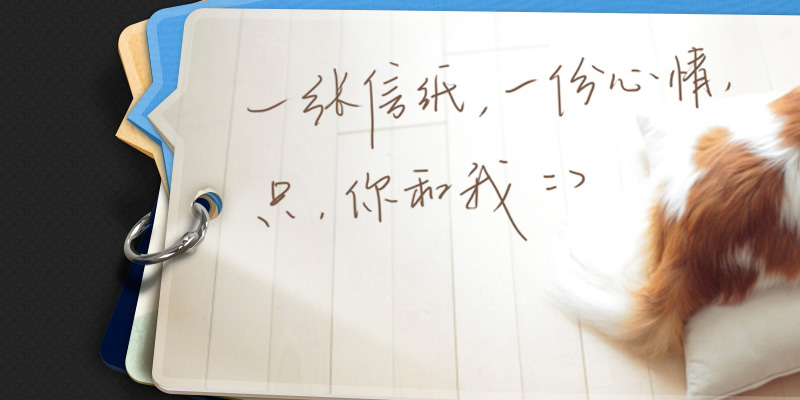 一张信纸，一份心情，
只，你和我 =>